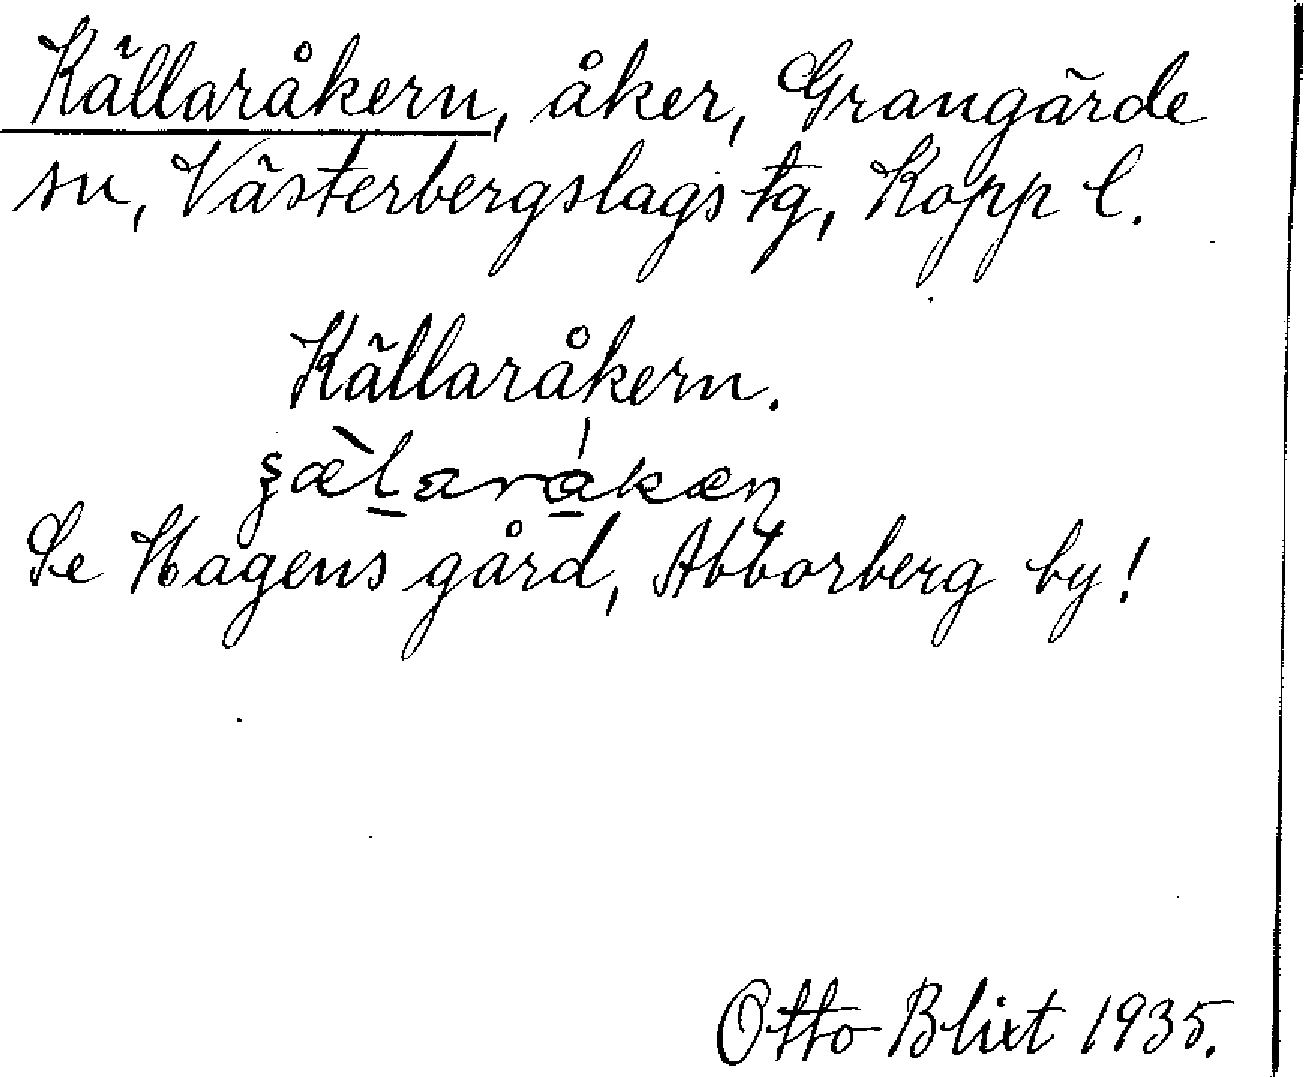 Källaråkern, åker, Grangärde
sn, Västerbergslags tg, Kopp l.
Källaråkern.
Se Hagens gård, Abborberg by!
Otto Blixt 1935.